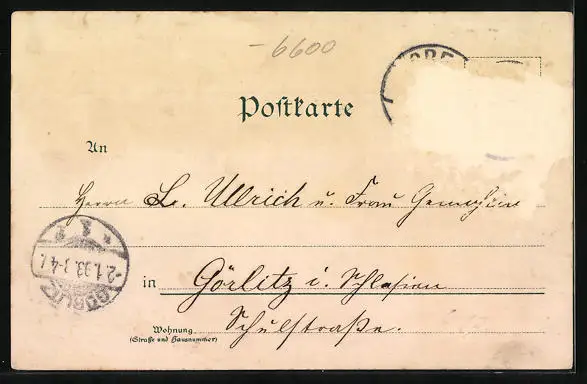 -6600
Postkarte
An
Herrn L. Ullrich u. Frau Gemahlin
-2.1.93. 3-4
GÖRLITZ
in Görlitz i. Schlesien
Wohnung
(Straße und Hausnummer)
Schulstraße.